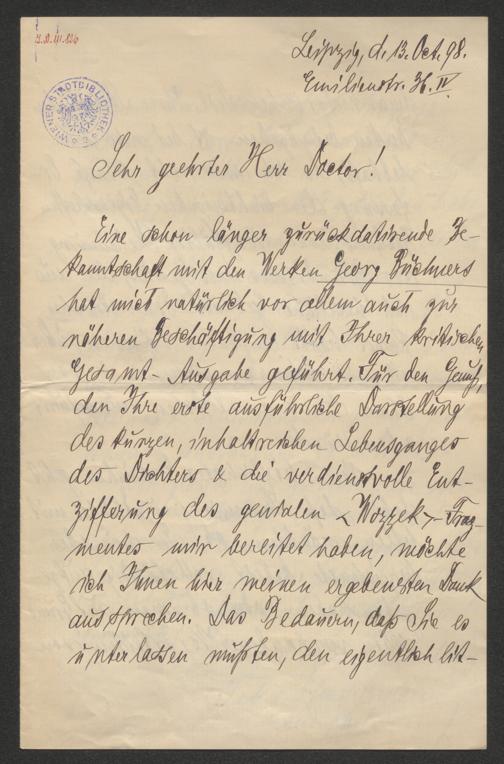 Leipzig, d. 13. Oct. 98.
Emilienstr. 36. IV
WIENER STADTBIBLIOTHEK
Sehr geehrter Herr Doctor!
Eine schon länger zurückdatirende Be-
kanntschaft mit den Werken Georg Büchners
hat mich natürlich vor allem auch zur
näheren Beschäftigung mit Ihrer kritischen
Gesamt-Ausgabe geführt. Für den Genuß,
den Ihre erste ausführliche Darstellung
des kurzen, inhaltreichen Lebensganges
des Dichters & die verdienstvolle Ent-
zifferung des genialen "Wozzek"-Frag-
mentes mir bereitet haben, möchte
ich Ihnen hier meinen ergebensten Dank
aussprechen. Das Bedauern, daß Sie es
unterlassen mußten, den eigentlich lit-